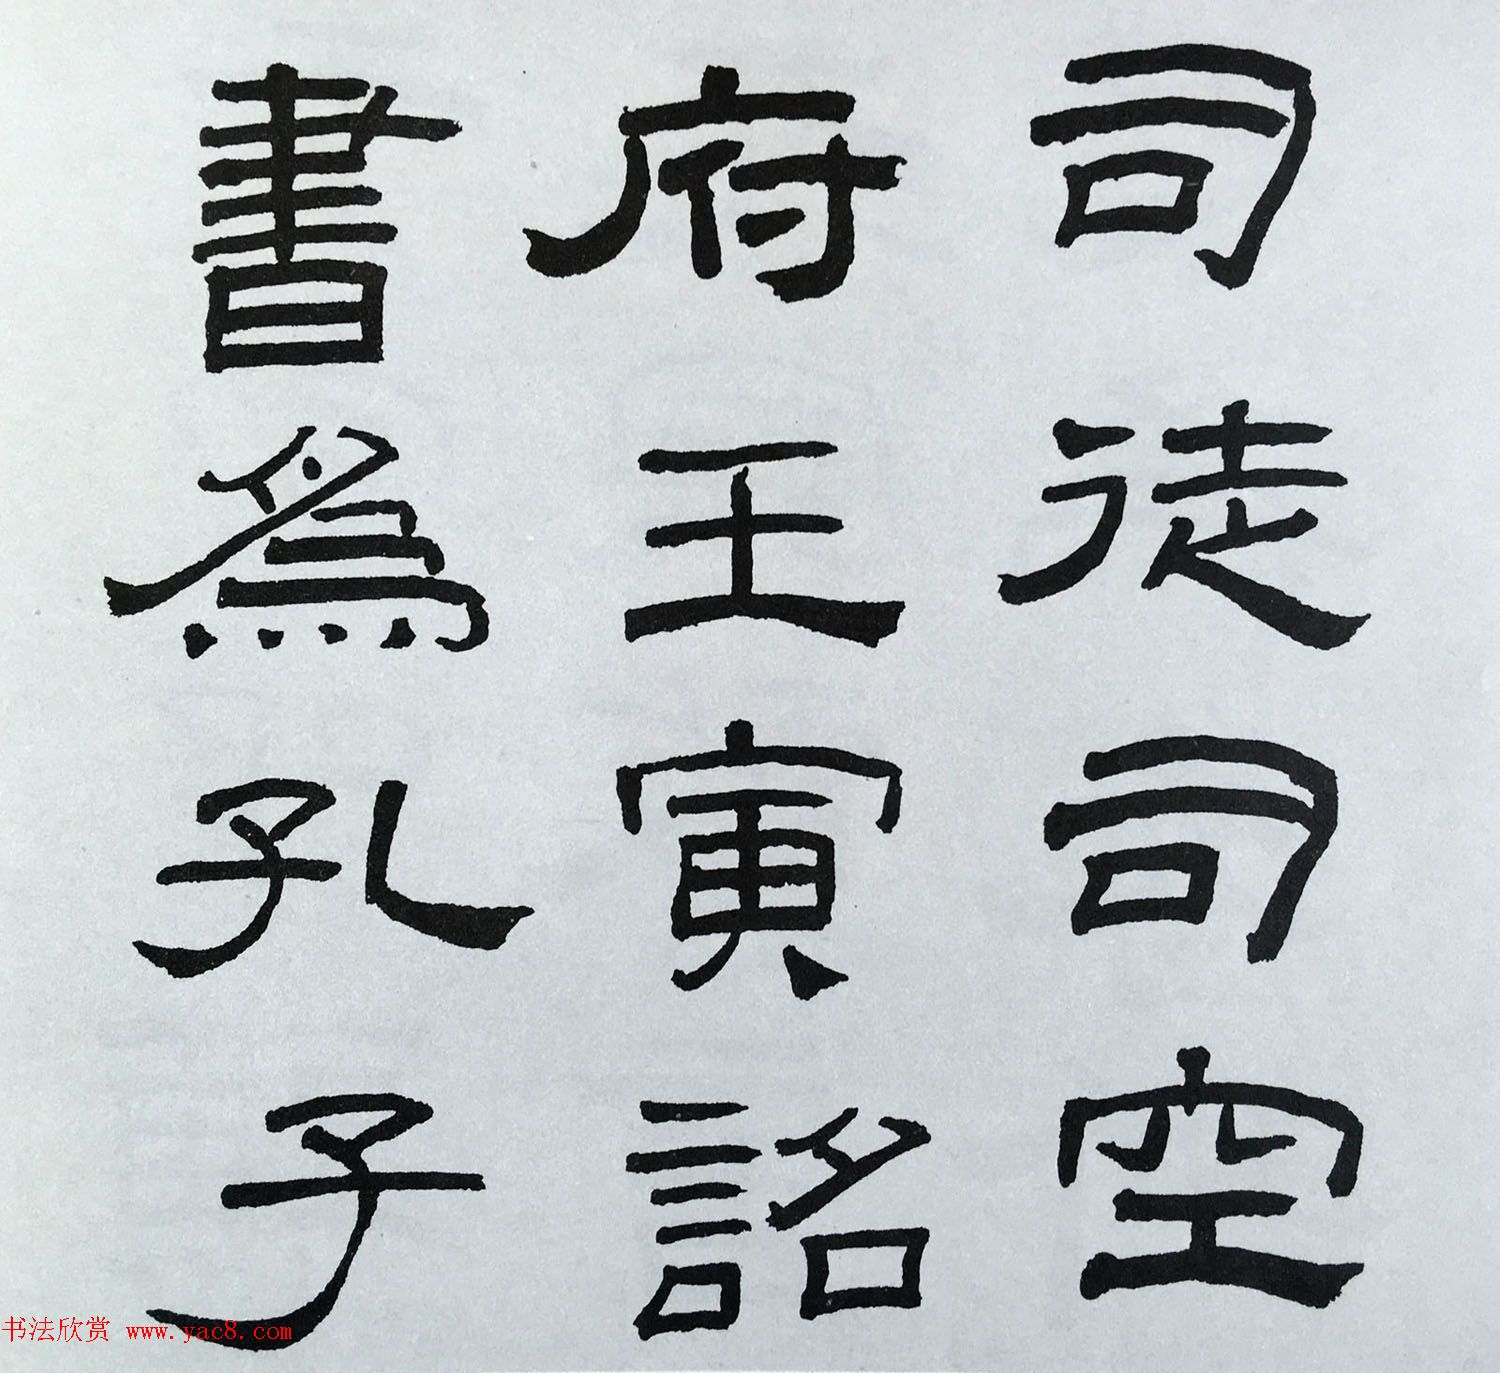 司徒司空
府壬寅詔
書為孔子
书法欣赏 www.yac8.com